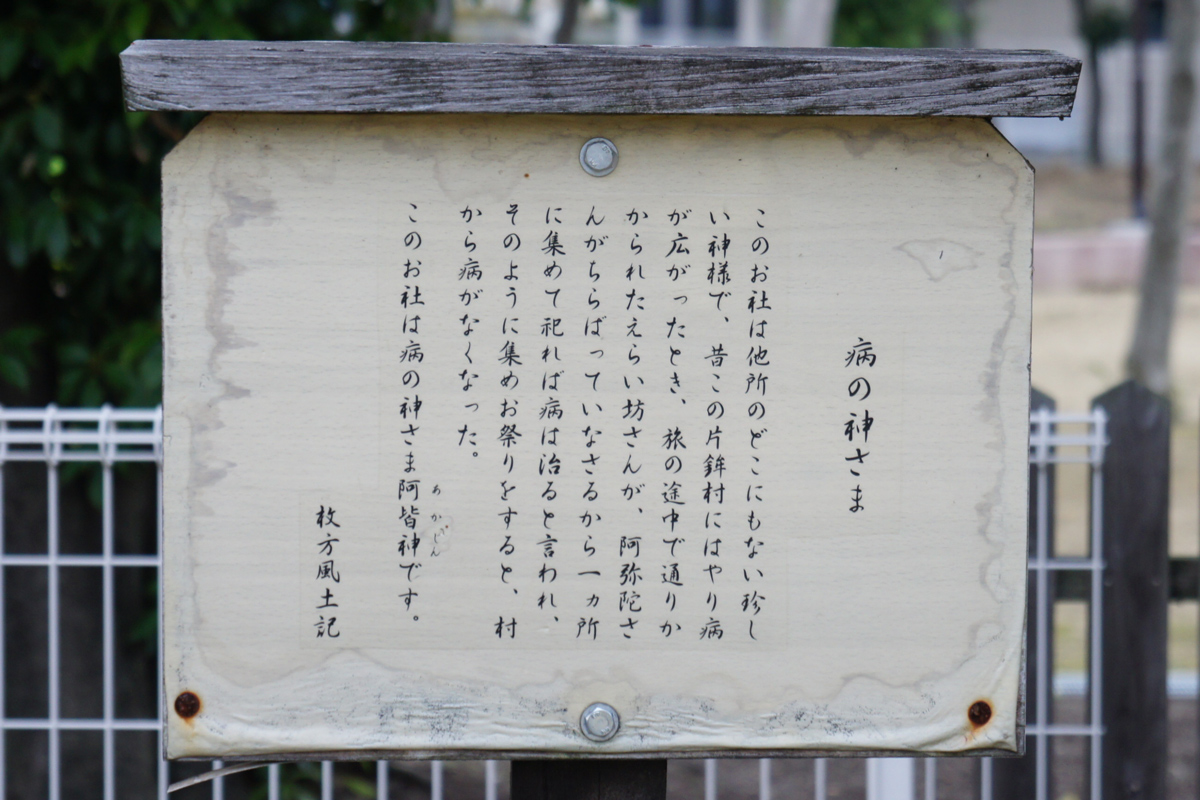 病の神さま
このお社は他所のどこにもない珍し
い神様で、昔この片鉾村にはやり病
が広がったとき、旅の途中で通りか
かられたえらい坊さんが、阿弥陀さ
んがちらばっていなさるから一ヵ所
に集めて祀れば病は治ると言われ、
そのように集めお祭りをすると、村
から病がなくなった。
あかがじん
このお社は病の神さま阿皆神です。
枚方風土記